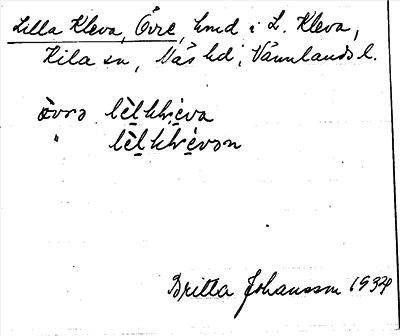 Lilla Kleva, Övre, hmd i L. Kleva,
Kila sn, Näs hd, Värmlands l.
övrə lèlkhlèva
" lèlkhlèvən
Britta Johansson 1934